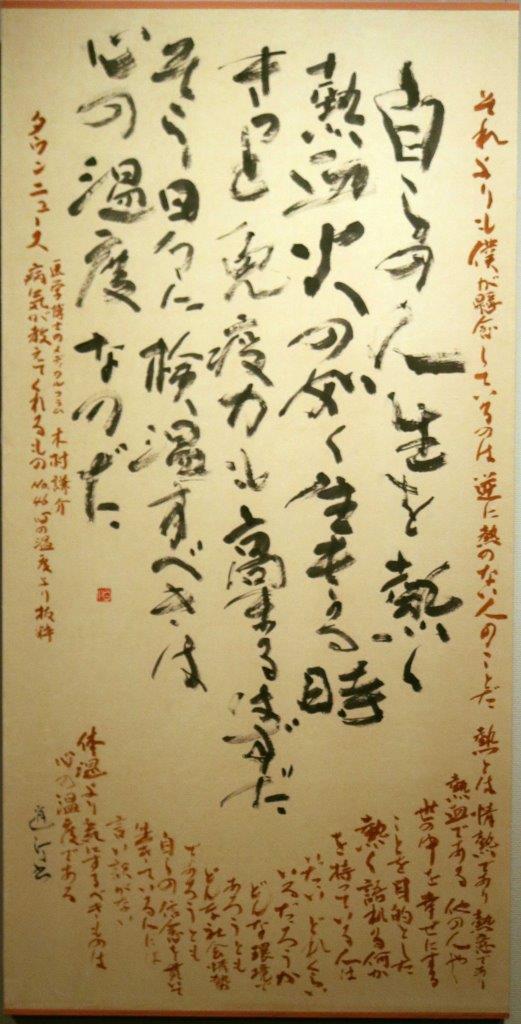 それよりも僕が懸念しているのは 逆に熱のない人のことだ 熱とは情熱であり熱意であり
熱血である 他の人や
世の中を幸せにする
ことを目的とした
熱く語れる何か
を持っている人は
いったいどれくらい
いるだろうか
どんな環境で
あろうとも
どんな社会情勢
であろうとも
自らの信念を貫いて
生きている人には
言い訳がない
体温より気にするべきものは
心の温度である
自らの人生を熱く
熱血火の如く生きる時
きっと免疫力も高まるはずだ
そう日々に検温すべきは
心の温度なのだ
医学博士のメディカルコラム 木村謙介
タウンニュース 病気が教えてくれるもの 心の温度より抜粋